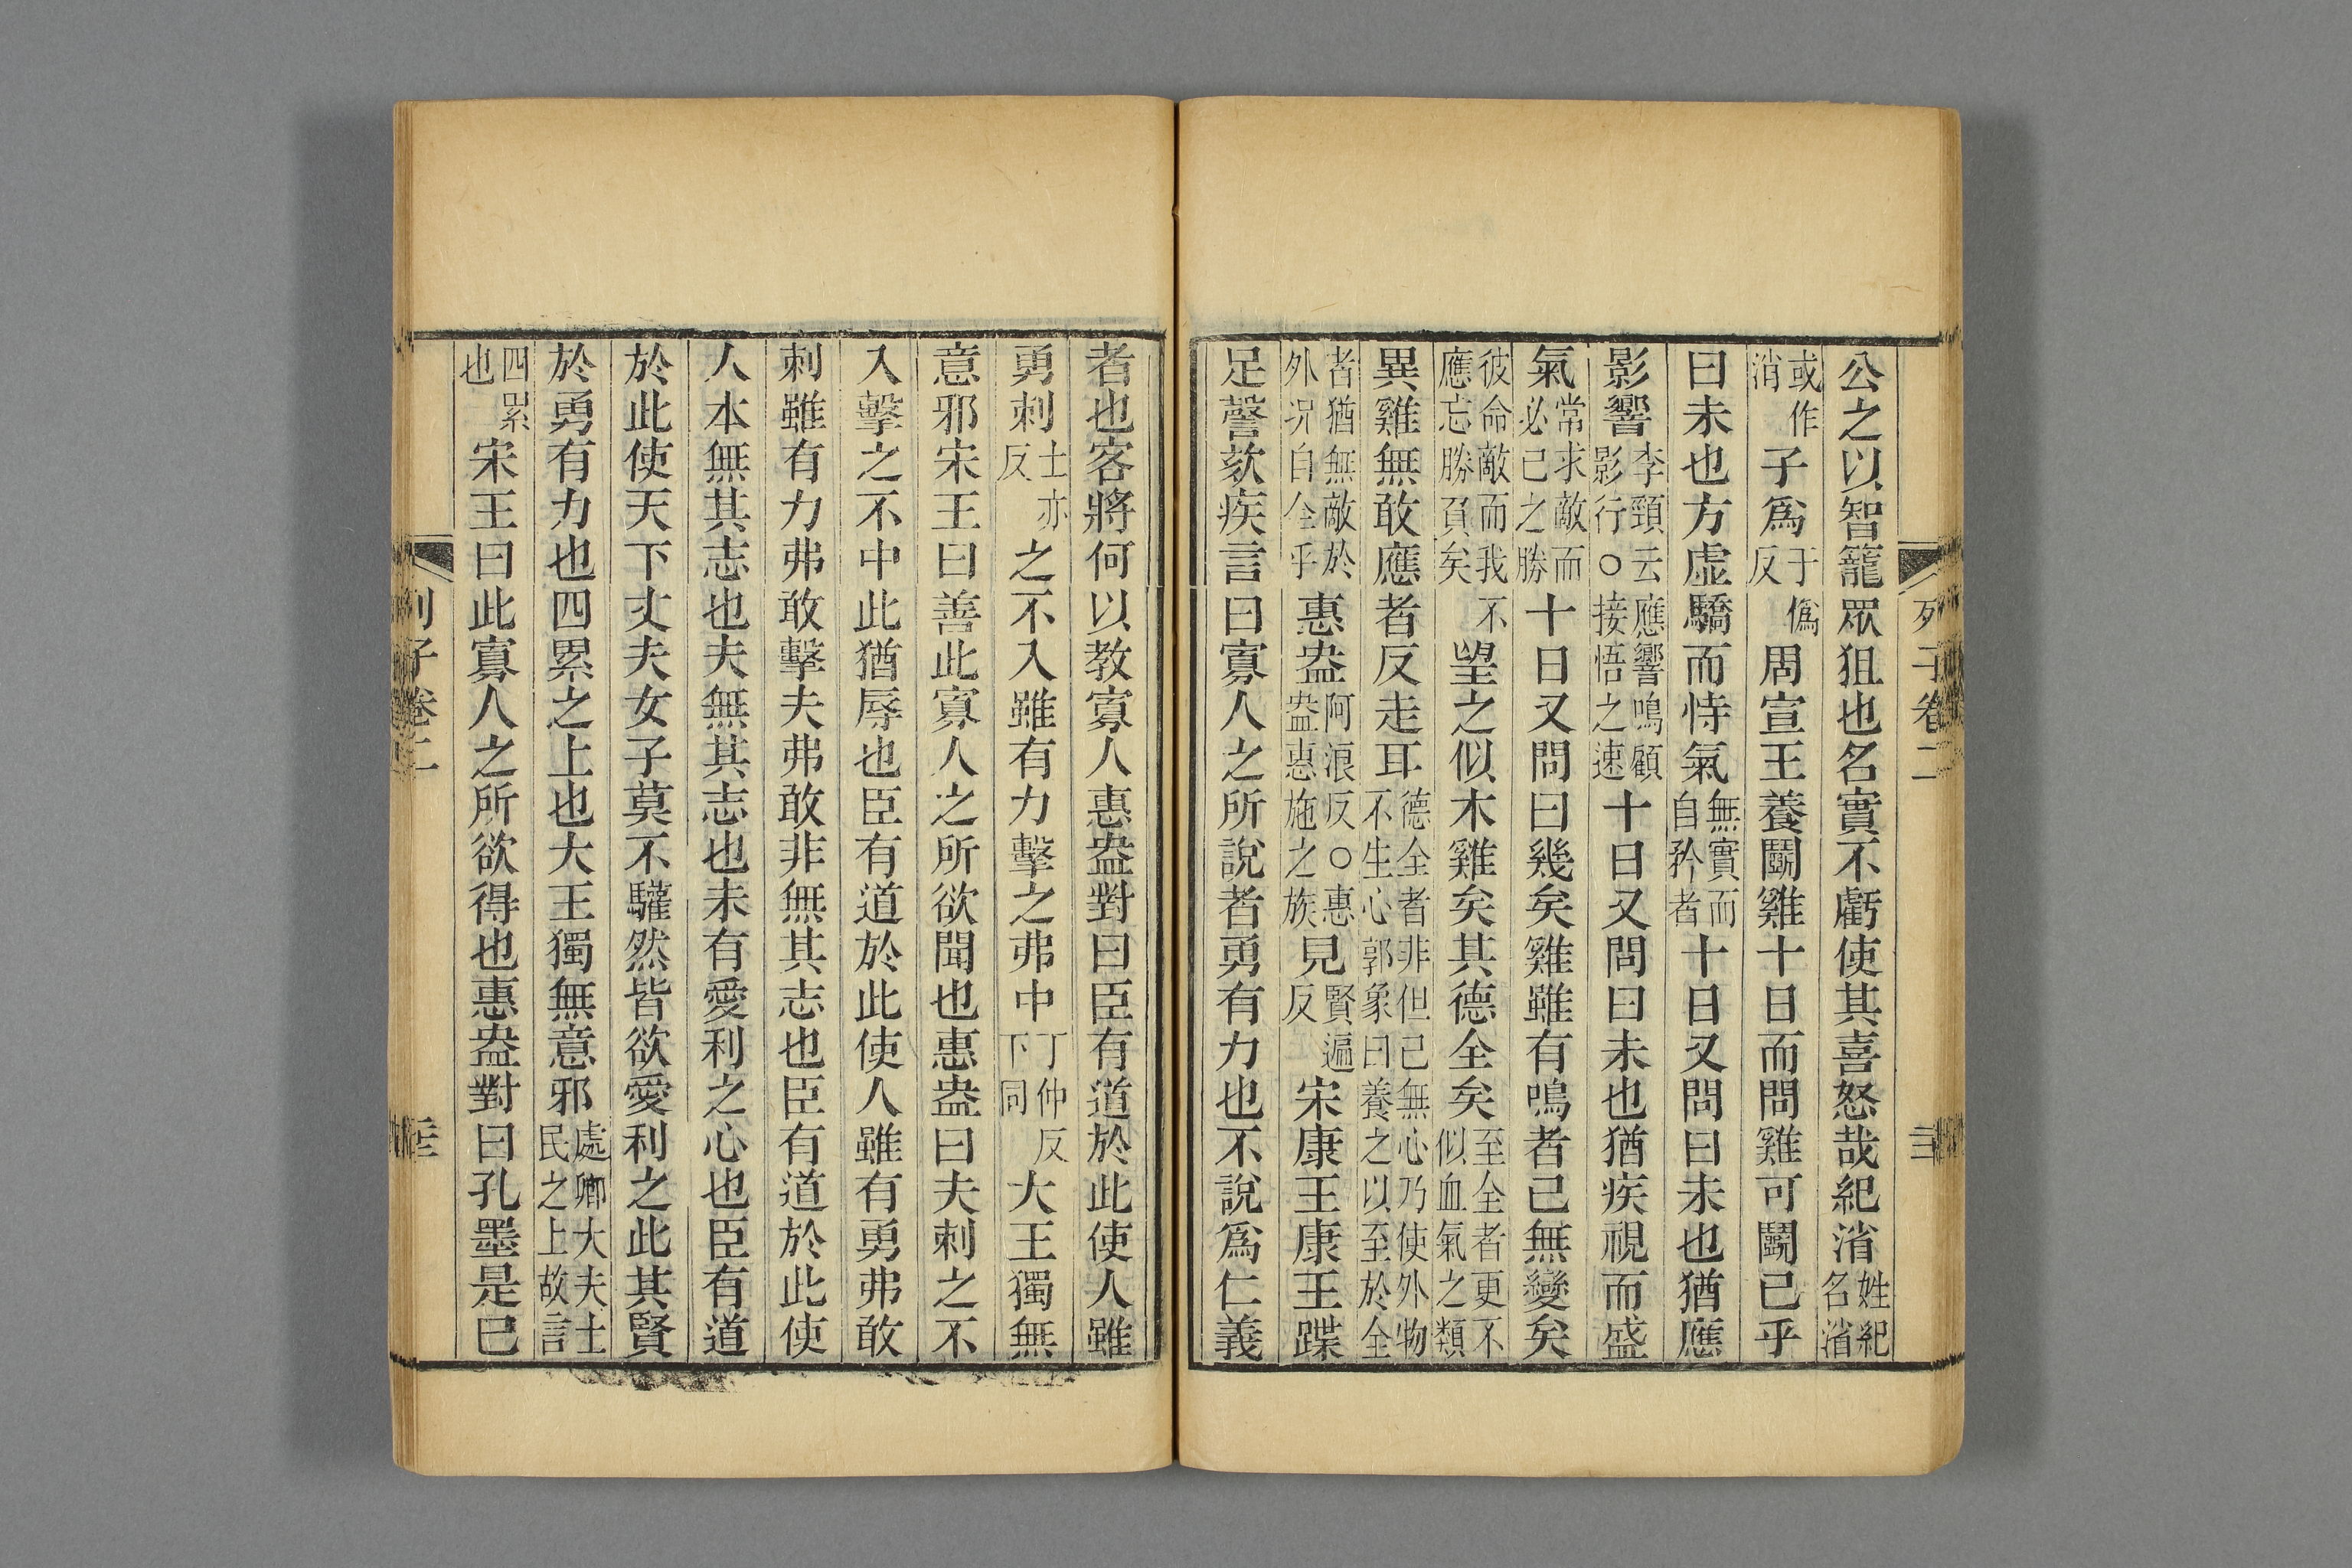 列子卷二
公之以智籠眾狙也名實不虧使其喜怒哉紀渻姓紀名渻
或作消子爲于僞反周宣王養鬬雞十日而問雞可鬬已乎
曰未也方虛驕而恃氣無實而自矜者十日又問曰未也猶應
影響李頤云應響鳴顧影行○接悟之速十日又問曰未也猶疾視而盛
氣常求敵而必己之勝十日又問曰幾矣雞雖有鳴者已無變矣
彼命敵而我不應忘勝負矣望之似木雞矣其德全矣至全者更不似血氣之類
異雞無敢應者反走耳德全者非但己無心乃使外物不生心郭象曰養之以至於全
者猶無敵於外况自全乎惠盎阿浪反○惠盎惠施之族見賢遍反宋康王康王蹀
足謦欬疾言曰寡人之所說者勇有力也不說爲仁義
者也客將何以教寡人惠盎對曰臣有道於此使人雖
勇刺士亦反之不入雖有力擊之弗中丁仲反下同大王獨無
意邪宋王曰善此寡人之所欲聞也惠盎曰夫刺之不
入擊之不中此猶辱也臣有道於此使人雖有勇弗敢
刺雖有力弗敢擊夫弗敢非無其志也臣有道於此使
人本無其志也夫無其志也未有愛利之心也臣有道
於此使天下丈夫女子莫不驩然皆欲愛利之此其賢
於勇有力也四累之上也大王獨無意邪處卿大夫士民之上故言
四累也宋王曰此寡人之所欲得也惠盎對曰孔墨是已
列子卷二